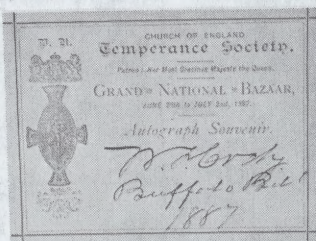 V. R.
CHURCH OF ENGLAND
Temperance Society.
Patron: Her Most Gracious Majesty the Queen.
GRAND NATIONAL BAZAAR,
JUNE 29th to JULY 2nd, 1887.
Autograph Souvenir.
W. F. Cody
Buffalo Bill
1887